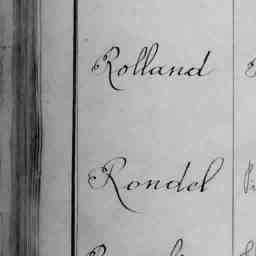 Rolland
Rondel